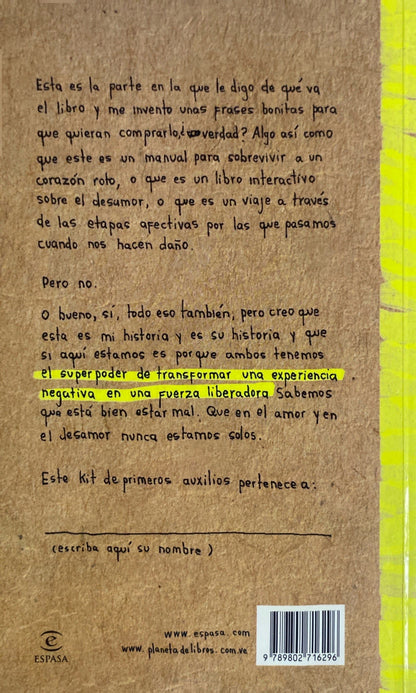 Esta es la parte en la que le digo de qué va
el libro y me invento unas frases bonitas para
que quieran comprarlo, ¿verdad? Algo así como
que este es un manual para sobrevivir a un
corazón roto, o que es un libro interactivo
sobre el desamor, o que es un viaje a través
de las etapas afectivas por las que pasamos
cuando nos hacen daño.
Pero no.
O bueno, sí, todo eso también, pero creo que
esta es mi historia y es su historia y que
si aquí estamos es porque ambos tenemos
el superpoder de transformar una experiencia
negativa en una fuerza liberadora. Sabemos
que está bien estar mal. Que en el amor y en
el desamor nunca estamos solos.
Este kit de primeros auxilios pertenece a:
(escriba aquí su nombre)
ESPASA
www.espasa.com
www.planetadelibros.com.ve
9 789802 716296